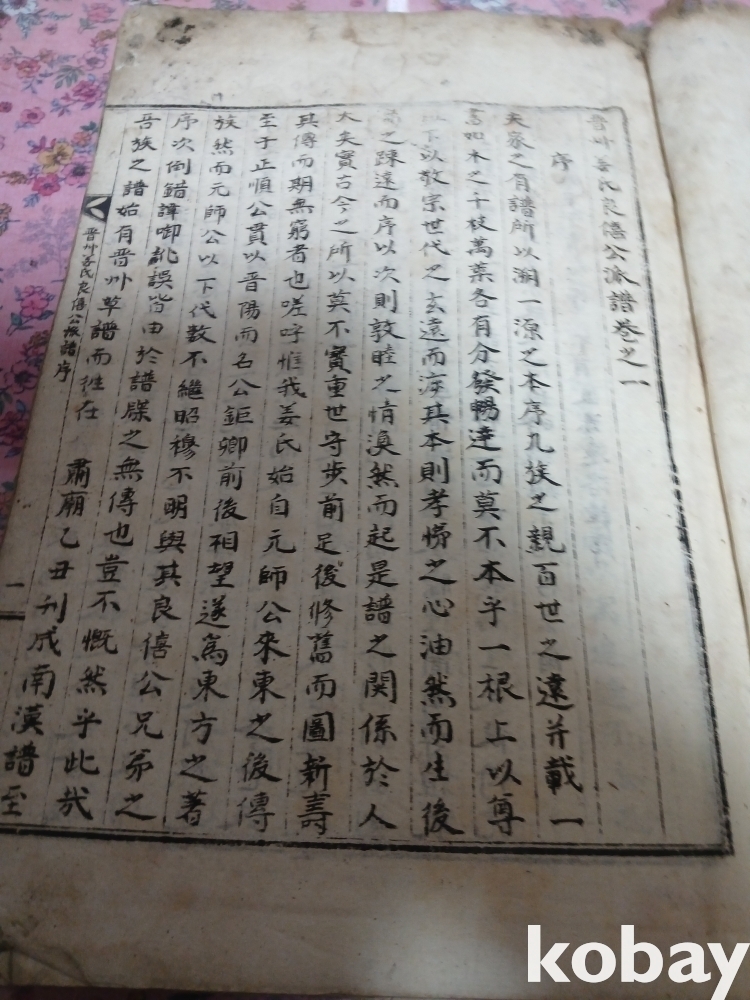 晋州姜氏良僖公派譜卷之一
序
夫家之有譜所以溯一源之本序九族之親百世之遠并載一
焉如木之千枝萬葉各有分發暢達而莫不本乎一根上以尊
以下以敬宗世代之玄遠而泝其本則孝悌之心油然而生後
之踈遠而序以次則敦睦之情渙然而起是譜之関係於人
大矣實古今之所以莫不實重世守步前足後修舊而圖新壽
其傳而期無窮者也嗟呼惟我姜氏始自元師公來東之後傳
至于正順公貫以晋陽而名公鉅卿前後相望遂為東方之著
族然而元師公以下代数不繼昭穆不明與其良僖公兄弟之
序次倒錯諱啣訛誤皆由於譜牒之無傳也豈不慨然乎此我
吾族之譜始有晋州草譜而徃在 肅廟乙丑刋成南漢譜至
晋州姜氏良僖公派譜序
一
kobay